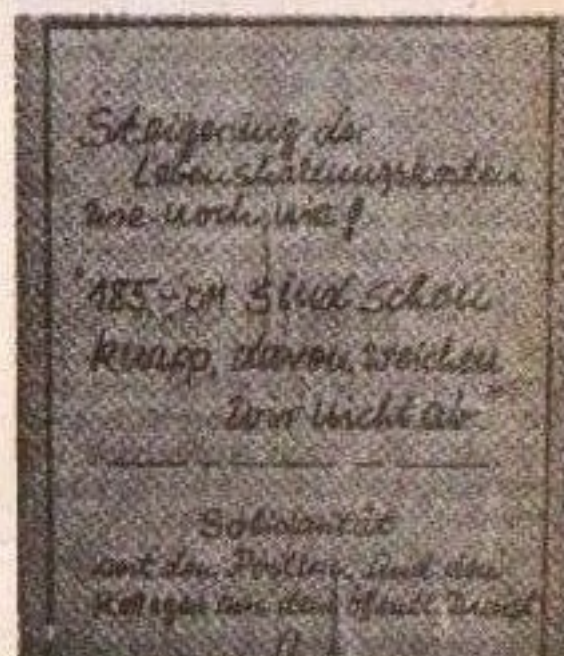 Steigerung der
Lebenshaltungskosten
wie noch nie!
"185,- DM sind schon
knapp, davon weichen
wir nicht ab"
Solidarität
mit den Postlern und den
Kollegen aus dem öffentl. Dienst